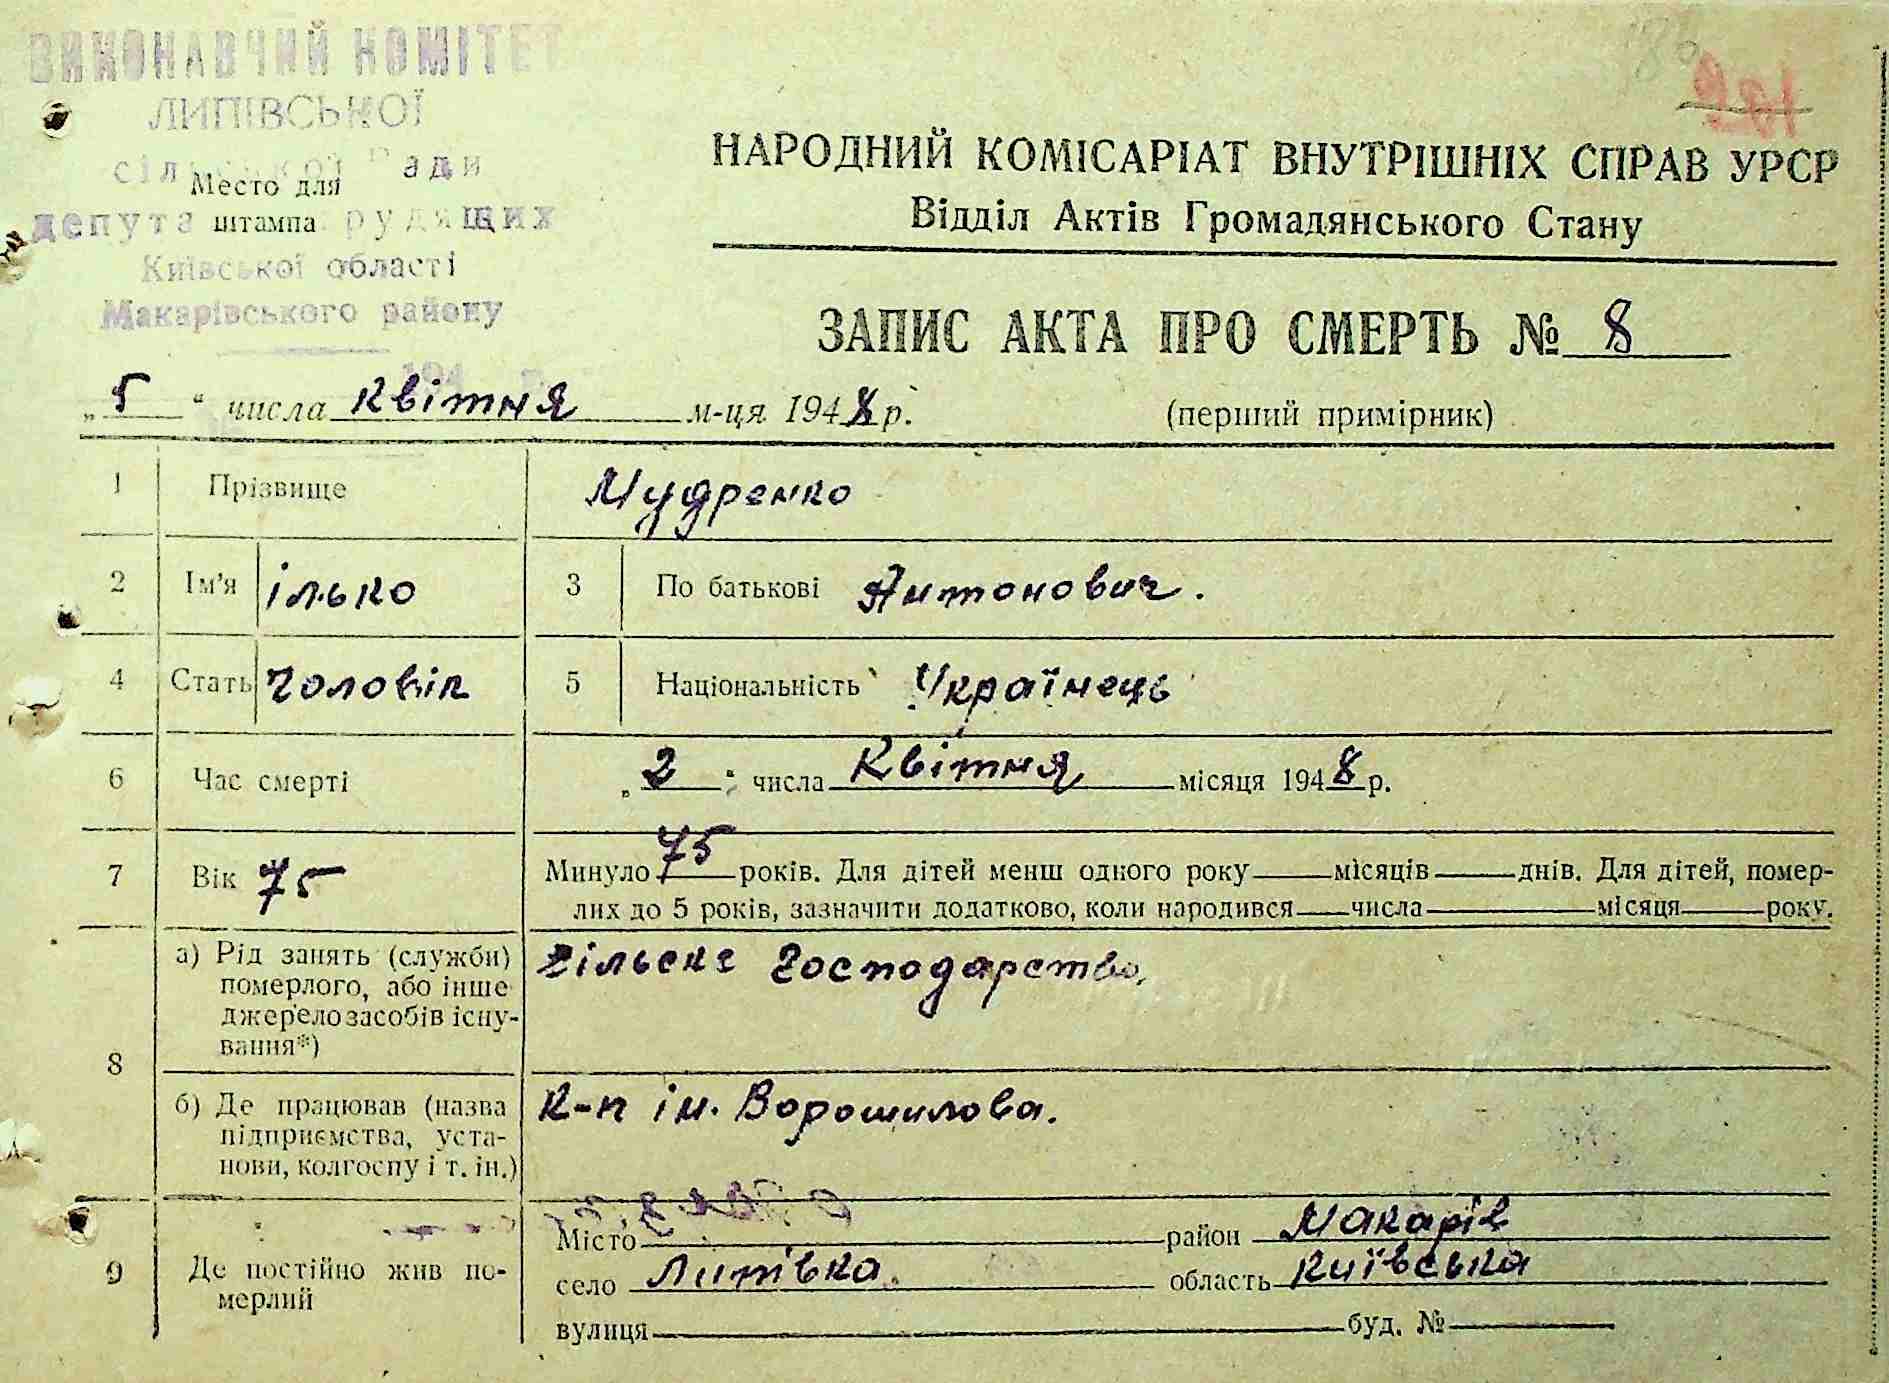 ВИКОНАВЧИЙ КОМІТЕТ
ЛИПІВСЬКОЇ
сільської Ради
Место для
депута штампа рудящих
Київської області
Макарівського району
194 р.
НАРОДНИЙ КОМІСАРІАТ ВНУТРІШНІХ СПРАВ УРСР
Відділ Актів Громадянського Стану
ЗАПИС АКТА ПРО СМЕРТЬ № 8
„5“ числа Квітня м-ця 1948 р.
(перший примірник)
1 Прізвище Мудренко
2 Ім'я Ілько 3 По батькові Антонович.
4 Стать Чоловік 5 Національність Українець
6 Час смерті „2“ числа Квітня місяця 1948 р.
7 Вік 75 Минуло 75 років. Для дітей менш одного року місяців днів. Для дітей, помер-
лих до 5 років, зазначити додатково, коли народився числа місяця року.
8 а) Рід занять (служби) Сільске Господарство.
померлого, або інше
джерело засобів існу-
вання*)
б) Де працював (назва К-п ім. Ворошилова.
підприємства, уста-
нови, колгоспу і т. ін.)
9 Де постійно жив по-
мерлий
Місто район Макарів
село Липівка. область Київська
вулиця буд. №